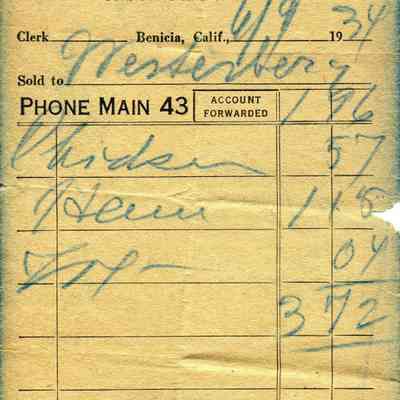 Clerk Benicia, Calif., 6/9 1934
Sold to Westerberg
PHONE MAIN 43 ACCOUNT FORWARDED 1 96
Chicken 57
Ham 1 15
Tax 04
3 72